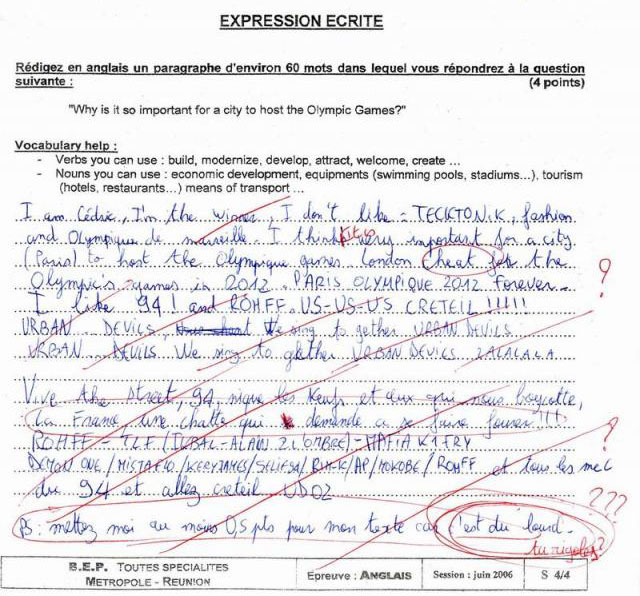 EXPRESSION ECRITE
Rédigez en anglais un paragraphe d'environ 60 mots dans lequel vous répondrez à la question
suivante : (4 points)
"Why is it so important for a city to host the Olympic Games?"
Vocabulary help :
- Verbs you can use : build, modernize, develop, attract, welcome, create ...
- Nouns you can use : economic development, equipments (swimming pools, stadiums...), tourism
(hotels, restaurants...) means of transport ...
I am Cédric, I'm the winner, I don't like = TECKTONIK, fashion
and Olympique de marseille. I think it is very important for a city
(Paris) to host the Olympique games. London Cheat for the
Olympic's games in 2012. PARIS OLYMPIQUE 2012 Forever
I like 94! and ROHFF. US-US-US CRETEIL !!!!!
URBAN DEVILS, We sing to gether URBAN DEVILS
URBAN DEVILS We sing to gether URBAN DEVILS LALALALA
?
Vive the Street, 94, nique les Keufs et ceux qui nous boycotte,
La France, une chatte qui demande a se faire !!!
ROHFF = TLF (IKBAL-ALAIN 2 L'OMBRE) - MAFIA K1FRY
DEMON ONE / MISTA FLO / KERY JAMES / SELIFSA / RIMK / AP / MOKOBE / ROHFF et tous les mec
du 94 et allez creteil UD02
?
???
PS: mettez moi au moins 0,5 pts pour mon texte car c'est du lourd.
tu rigoles?
B.E.P. TOUTES SPECIALITES
METROPOLE - REUNION
Epreuve : ANGLAIS
Session : juin 2006
S 4/4